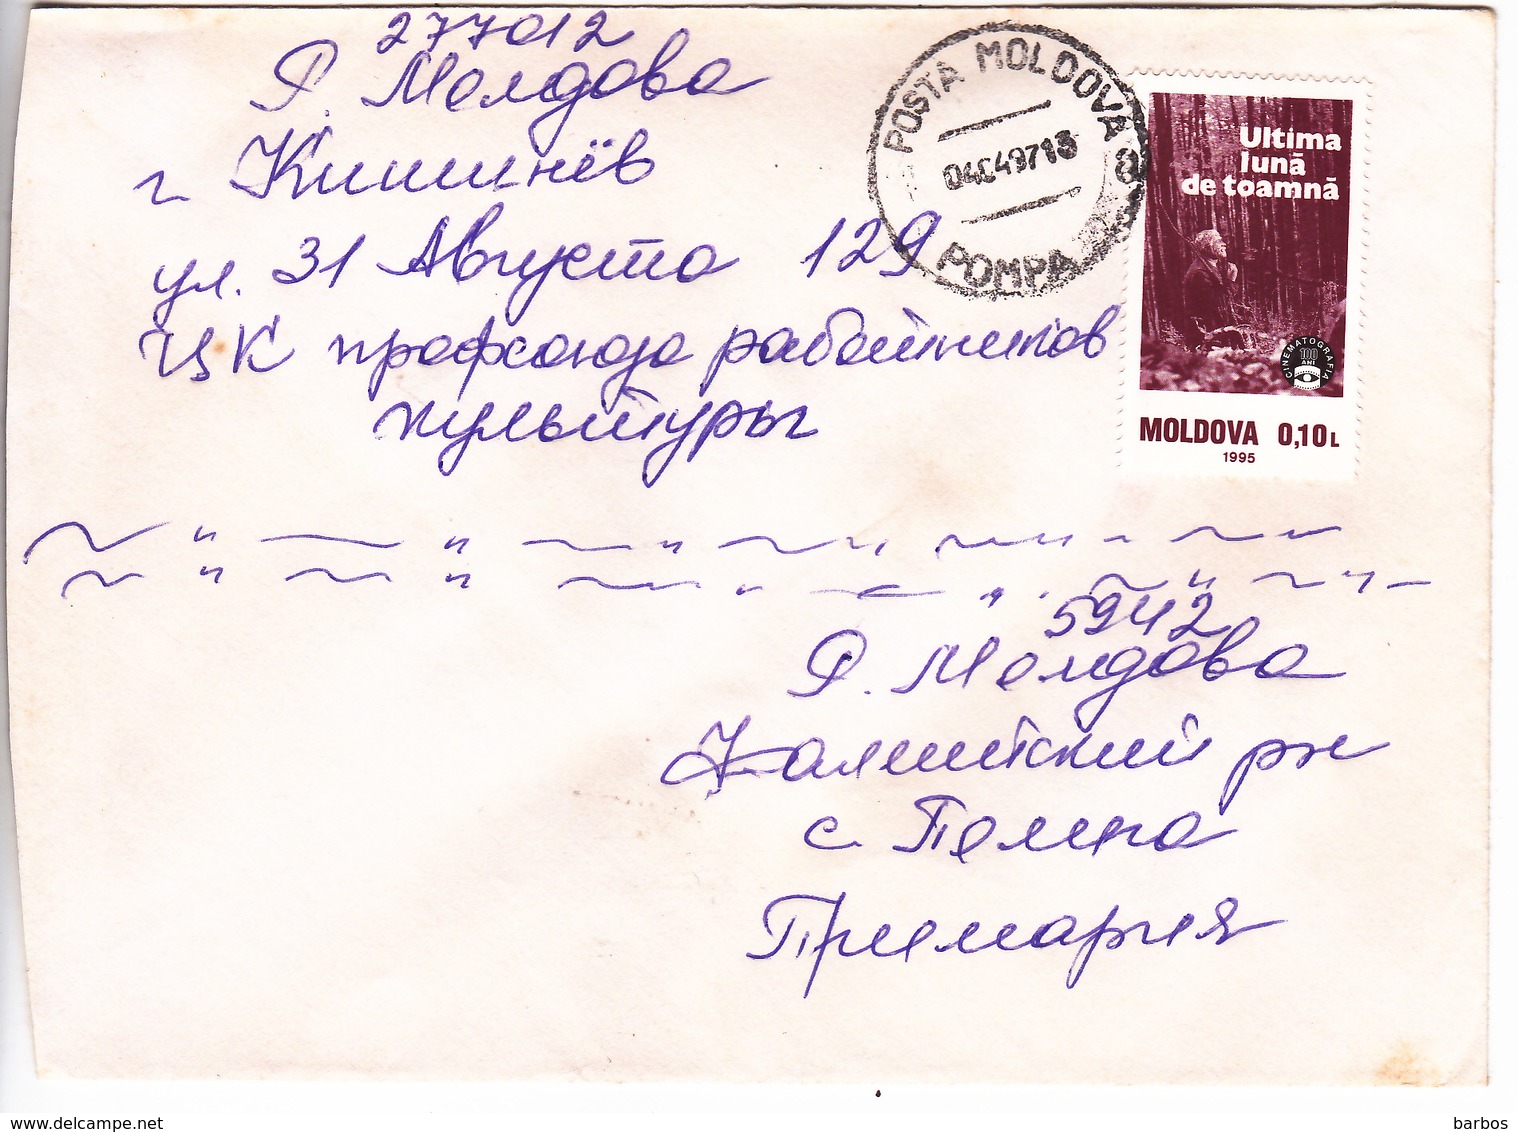 277012
Р. Молдова
г Кишинёв
ул. 31 Августа 129
ЦК профсоюза работников
культуры
POSTA MOLDOVA a
04049718
POMPA
Ultima
lună
de toamnă
CINEMATOGRAFIA
100
ANI
MOLDOVA 0,10L
1995
5942
Р. Молдова
р-н
с. Пелина
Примария
www.delcampe.net
barbos